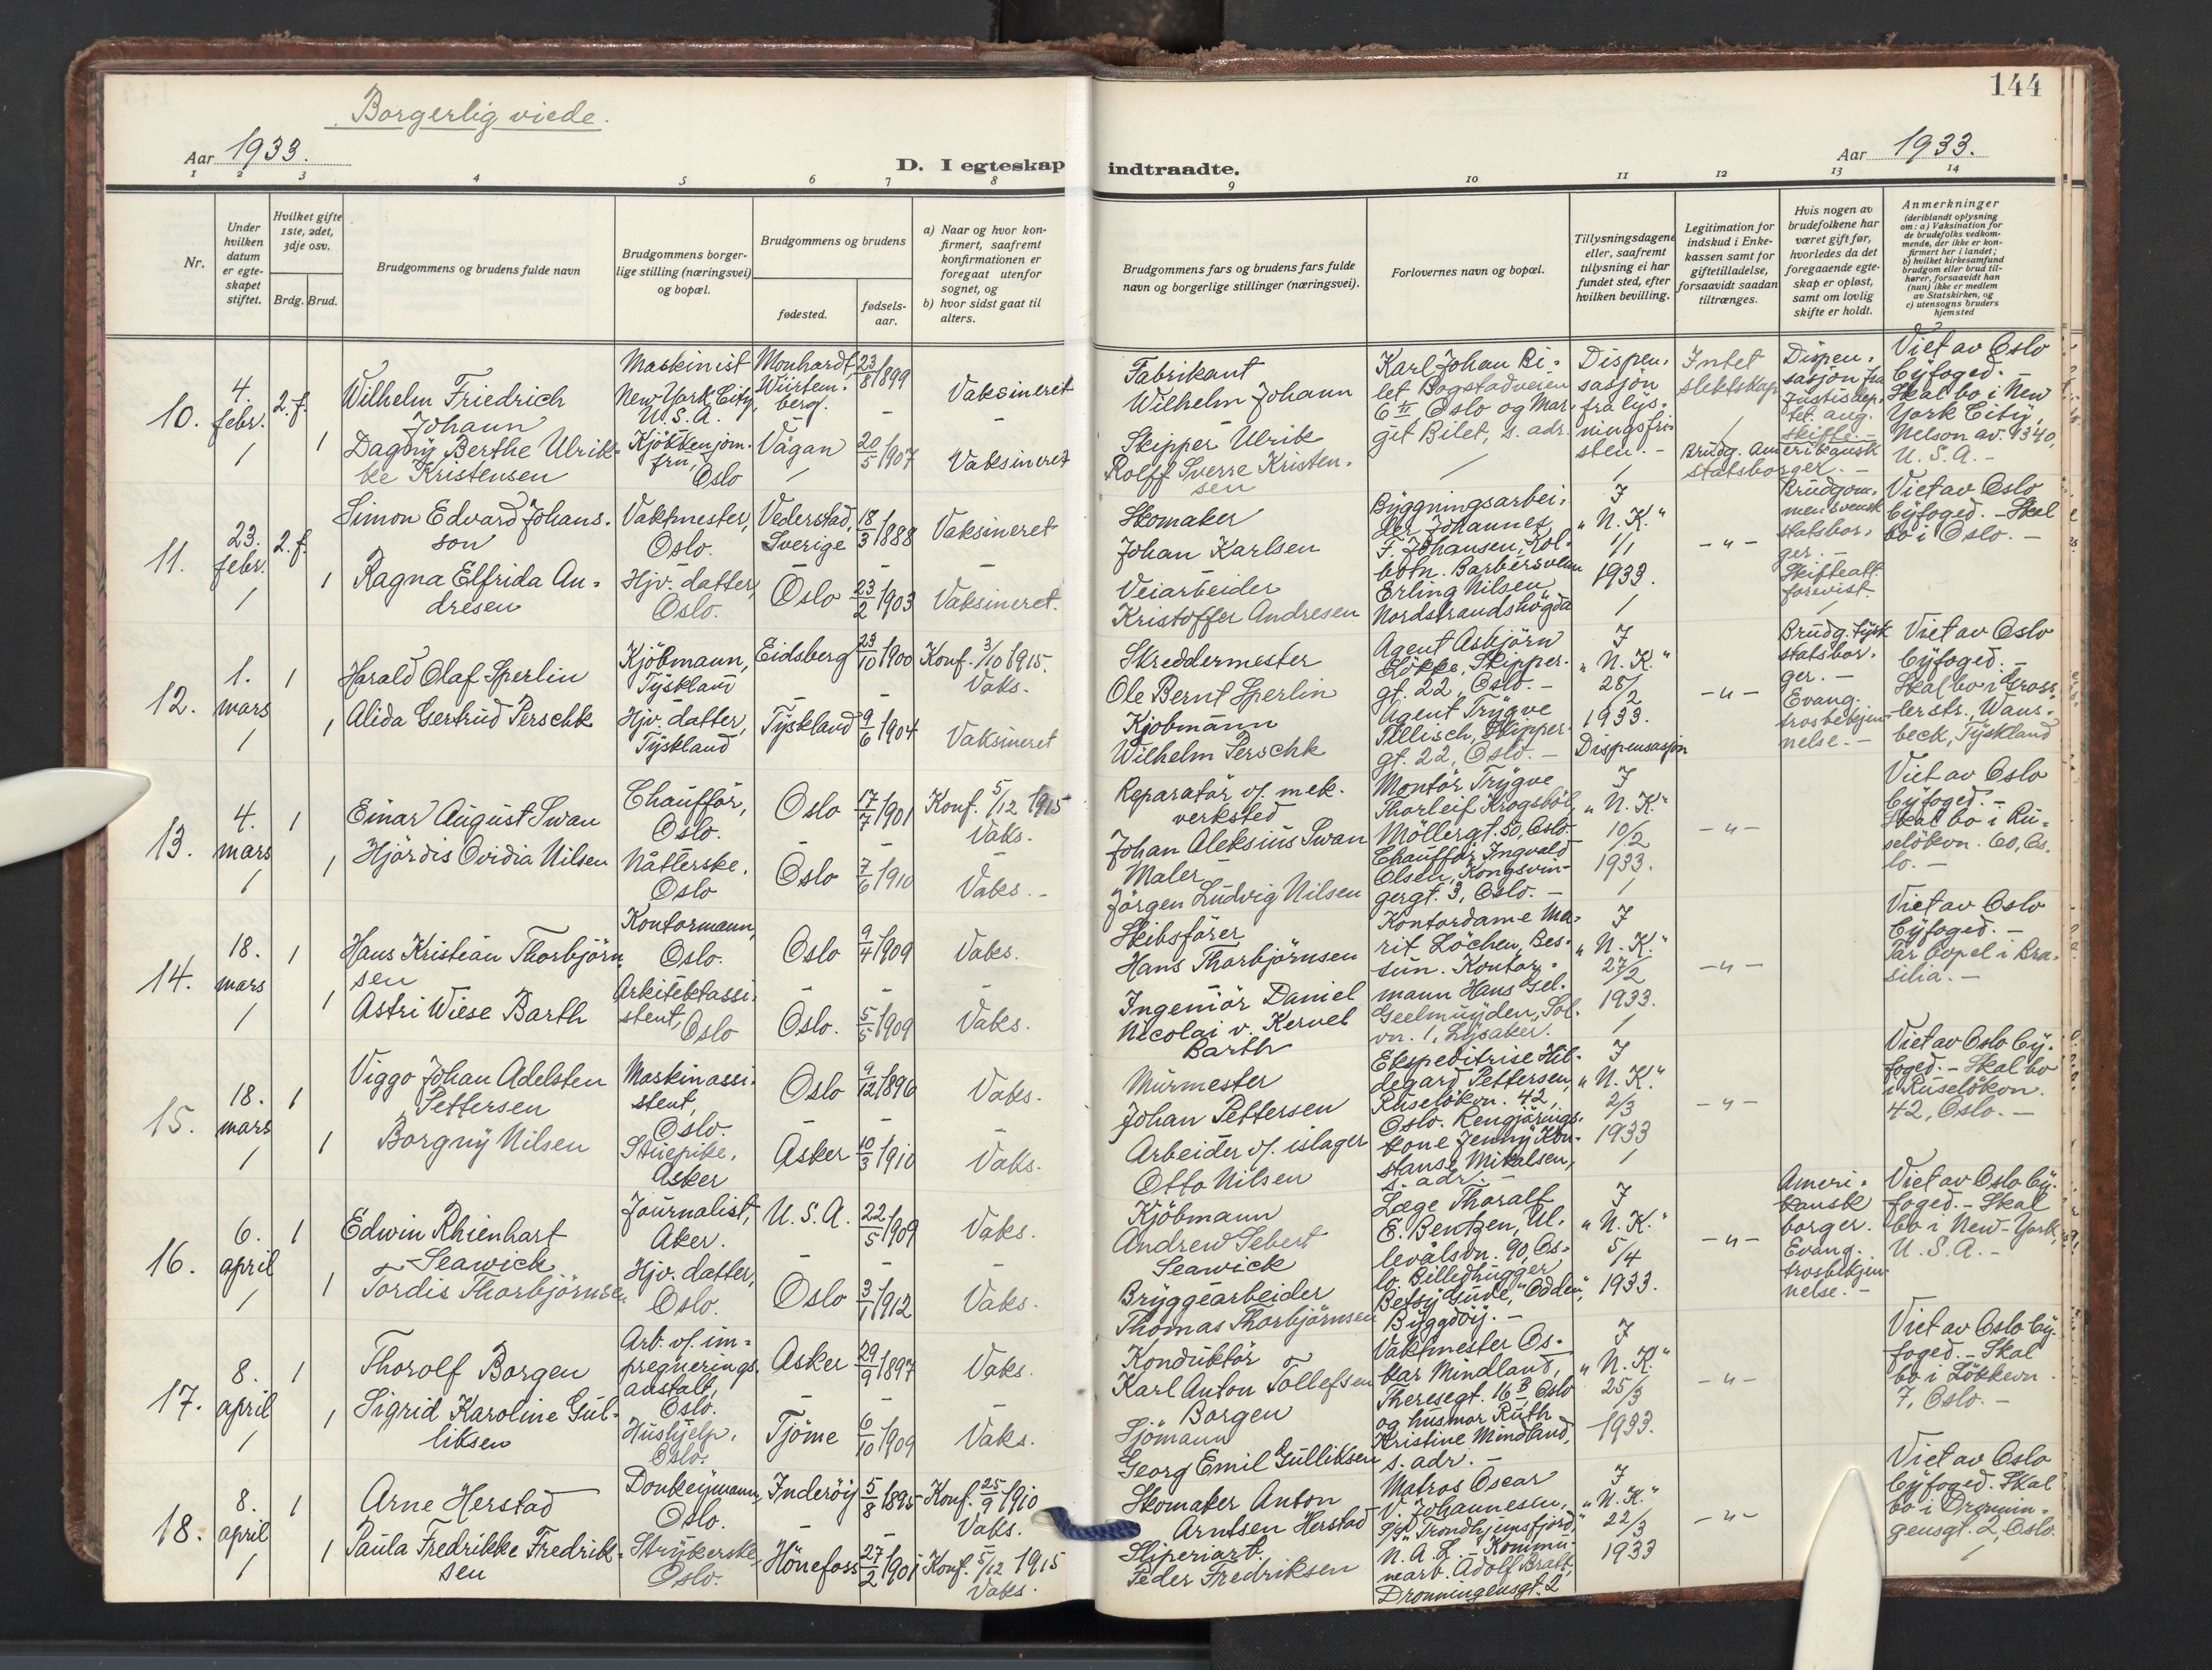 Borgerlig viede.
Aar 1933.
D. I egteskap indtraadte.
Aar 1933.
144
1 2 3 4 5 6 7 8 9 10 11 12 13 14
Nr.
Under hvilken datum er egteskapet stiftet.
Hvilket gifte 1ste, 2det, 3dje osv.
Brdg. Brud.
Brudgommens og brudens fulde navn
Brudgommens borgerlige stilling (næringsvei) og bopæl.
Brudgommens og brudens
fødested.
fødselsaar.
a) Naar og hvor konfirmert, saafremt konfirmationen er foregaat utenfor sognet, og
b) hvor sidst gaat til alters.
Brudgommens fars og brudens fars fulde navn og borgerlige stillinger (næringsvei).
Forlovernes navn og bopæl.
Tillysningsdagene eller, saafremt tillysning ei har fundet sted, efter hvilken bevilling.
Legitimation for indskud i Enkekassen samt for giftetilladelse, forsaavidt saadan tiltrænges.
Hvis nogen av brudefolkene har været gift før, hvorledes da det foregaaende egteskap er opløst, samt om lovlig skifte er holdt.
Anmerkninger (deriblandt oplysning om: a) Vaksination for de brudefolks vedkommende, der ikke er konfirmert her i landet; b) hvilket kirkesamfund brudgom eller brud tilhører, forsaavidt han (hun) ikke er medlem av Statskirken, og c) utensogns bruders hjemsted
10. 4. febr. 2. f.
Wilhelm Friedrich Johann
Maskinist New York City, U.S.A.
Monhardt, Würtemberg. 23/8 1899
Vaksineret
Fabrikant
Wilhelm Johann
Karl Johan Bilet Bogstadveien 6 II Oslo og Margit Bilet, s. adr.
Dispensasjon fra lysningsfristen. -
Intet slektskap
Dispensasjon fra Justisdep. tet. ang. skifte. -
Viet av Oslo byfoged. - Skal bo i New York City, Nelson av. 1340, U.S.A. -
1 Dagny Berthe Ulrikke Kristensen
Kjökkenjomfru, Oslo
Vågan 20/5 1907
Vaksineret
Skipper Ulrik
Rolff Sverre Kristensen
Brudg. Amerikansk statsborger. -
11. 23. febr. 2. f.
Simon Edvard Johansson
Vaktmester, Oslo.
Vederstad, Sverige 18/3 1888
Vaksineret
Skomaker
Johan Karlsen
Byggningsarbeider Johannes F. Johansen, Kolbotn. Barbersvenn Erling Nilsen Nordstrandshögda
I "N.K." 1/1 1933.
- " -
Brudgommen svensk statsborger. - Skifteatt. forevist.
Viet av Oslo byfoged. - Skal bo i Oslo. -
1 Ragna Elfrida Andresen
Hjv. datter, Oslo.
Oslo 23/2 1903
Vaksineret.
Veiarbeider
Kristoffer Andresen
12. 1. mars 1
Harald Olaf Sperlin
Kjöbmann, Tyskland
Eidsberg 23/10 1900
Konf. 3/10 1915. Vaks.
Skreddermester
Ole Bernt Sperlin
Agent Asbjörn Lökke, Skippergt. 22, Oslo. -
Agent Trygve Tillisch, Skippergt. 22, Oslo. -
I "N.K." 28/2 1933. Dispensasjon
- " -
Brudg. tysk statsborger. - Evang. trosbekjennelse. -
Viet av Oslo byfoged. - Skal bo i Grosslerstr., Wansbeck, Tyskland
1 Alida Gertrud Perschk
Hjv. datter, Tyskland
Tyskland 9/6 1904
Vaksineret
Kjöbmann
Wilhelm Perschk
13. 4. mars 1
Einar August Swan
Chauffør, Oslo.
Oslo 17/7 1901
Konf. 5/12 1915 Vaks.
Reparatör v/ mek. verksted
Johan Aleksius Swan
Montör Trygve Thorleif Krogsböl, Möllergt. 50, Oslo. -
Chauffør Ingvald Olsen, Kongsvingergt. 3, Oslo. -
I "N.K." 10/2 1933.
- " -
Viet av Oslo byfoged. - Skal bo i Ruselökvn. 60, Oslo. -
1 Hjördis Ovidia Nilsen
Nåtlerske. Oslo
Oslo 7/6 1910
Vaks. -
Maler
Jörgen Ludvig Nilsen
14. 18. mars 1
Hans Kristian Thorbjörnsen
Kontormann, Oslo.
Oslo 9/4 1909
Vaks.
Skibsförer
Hans Thorbjörnsen
Kontordame Marit Löchen, Bestun. Kontormann Hans Gel. Geelmuyden, Solvn. 1, Lysaker.
I "N.K." 27/2 1933.
- " -
Viet av Oslo byfoged. - Tar bopel i Brasilia. -
1 Astri Wiese Barth
Arkitektassistent, Oslo
Oslo. 5/5 1909
Vaks.
Ingeniör Daniel Nicolai v. Kervel Barth
15. 18. mars 1
Viggo Johan Adelsten Pettersen
Maskinassistent, Oslo.
Oslo 9/12 1896
Vaks.
Murmester
Johan Pettersen
Ekspeditrise Hildegard Pettersen, Ruselökvn. 42, Oslo. Rengjöringskone Jenny Konstanse Mikalsen, s. adr. -
I "N.K." 2/3 1933
- " -
Viet av Oslo byfoged. - Skal bo i Ruselökvn. 42, Oslo. -
1 Borgny Nilsen
Stuepike, Asker
Asker 10/3 1910
Vaks.
Arbeider v/ islager
Otto Nilsen
16. 6. april 1
Edwin Rhienhart Seawick
Journalist, Aker.
U.S.A. 22/5 1909
Vaks.
Kjöbmann
Andrew Gebert Seawick
Læge Thoralf E. Bentzen, Ullevålsvn. 90, Oslo. Billedhugger Betsy Gude, "Odden", Byggdöy. -
I "N.K." 5/4 1933.
- " -
Amerikansk borger. Evang. trosbekjennelse. -
Viet av Oslo byfoged. - Skal bo i New-York, U.S.A. -
1 Tordis Thorbjörnsen
Hjv. datter, Oslo.
Oslo 3/1 1912
Vaks.
Bryggearbeider
Thomas Thorbjörnsen
17. 8. april 1
Thorolf Borgen
Arb. v/ impregneringsanstalt, Oslo.
Asker 29/9 1897
Vaks.
Konduktör
Karl Anton Tollefsen Borgen
Vaktmester Oskar Mindland, Theresegt. 16 B Oslo og husmor Ruth Kristine Mindland, s. adr. -
I "N.K." 25/3 1933.
- " -
Viet av Oslo byfoged. - Skal bo i Lökkevn. 7, Oslo. -
1 Sigrid Karoline Gulliksen
Hushjelp, Oslo.
Tjöme 6/10 1909
Vaks.
Sjömann
Georg Emil Gulliksen
18. 8. april 1
Arne Herstad
Donkeymann, Oslo.
Inderöy 5/8 1895
Konf. 25/9 1910 Vaks.
Skomaker Anton Arntsen Herstad
Matros Oscar V. Johannesen, "Trondhjemsfjord," N.A.L. - Kommunearb. Adolf Bratt, Dronningensgt. 2
I "N.K." 22/3 1933
- " -
Viet av Oslo byfoged. Skal bo i Dronningensgt. 2, Oslo.
1 Paula Fredrikke Fredriksen
Strykerske Oslo.
Hönefoss 27/2 1901
Konf. 5/12 1915 Vaks.
Sliperiarb.
Peder Fredriksen